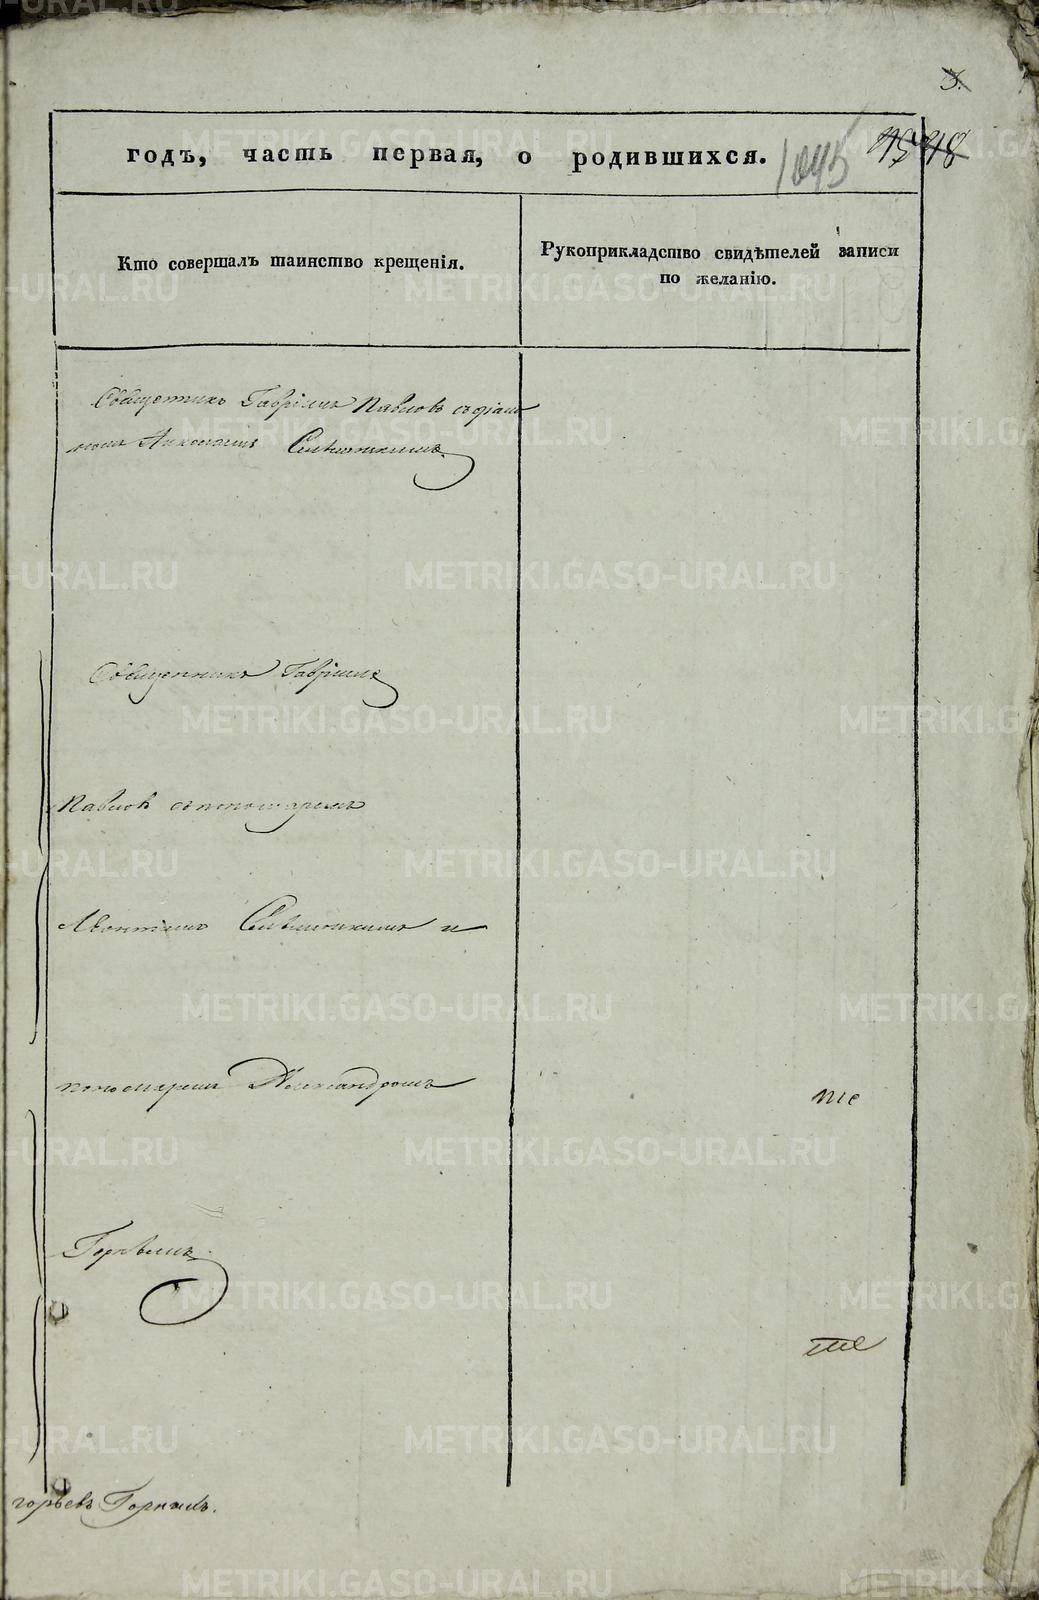 3.
годъ, часть первая, о родившихся.
1045
Кто совершалъ таинство крещенія.
Рукоприкладство свидѣтелей записи
по желанію.
Священникъ Гавріилъ Павловъ съ діако
номъ
Священникъ Гавріилъ
Павловъ съ пономаремъ
Леонтіемъ и
пономаремъ Александромъ
те
Горнымъ
те
горьевъ Горныхъ.
METRIKI.GASO-URAL.RU